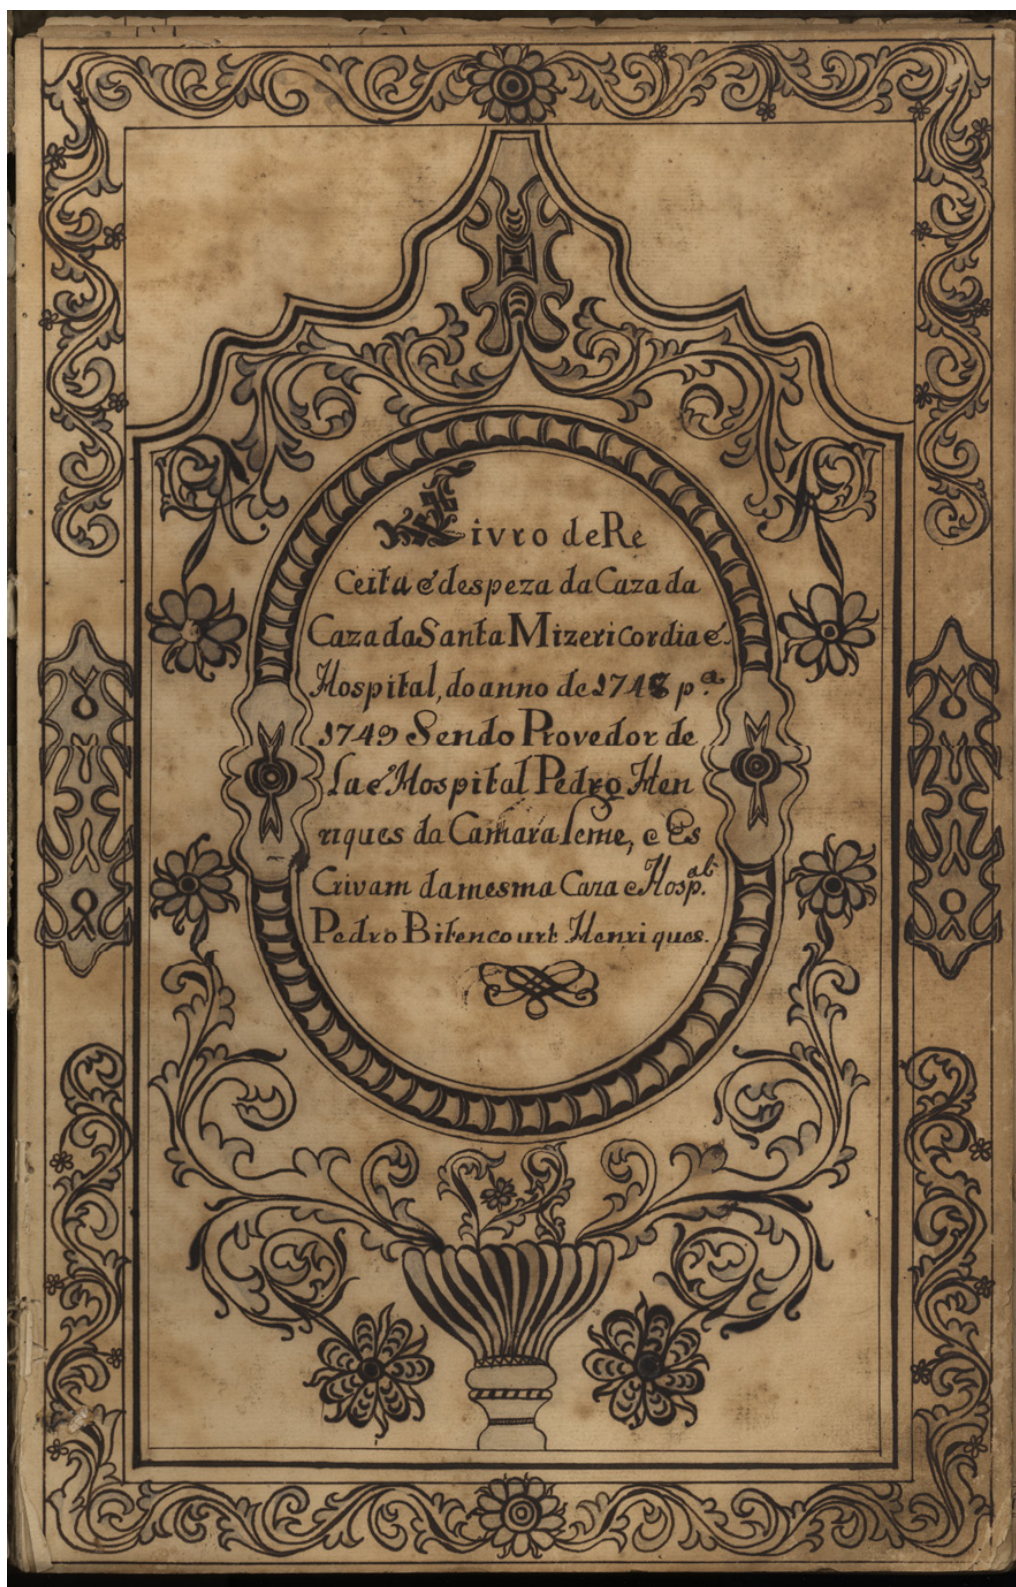 Livro de Re
Ceita e despeza da Caza da
Caza da Santa Mizericordia e
Hospital, do anno de 1748 p.ª
1749 Sendo Provedor de
La e Hospital Pedro Hen
riques da Camara leme, e Es
Crivam da mesma Caza e Hosp.al
Pedro Bitencourt Henriques.